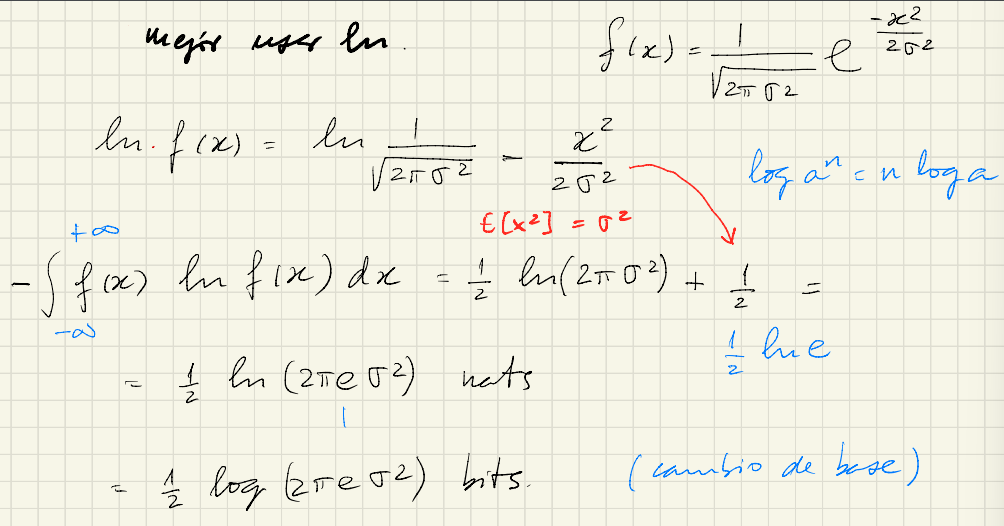 mejor usar ln.
f(x) = 1/√(2πσ²) e^(-x²/2σ²)
ln f(x) = ln 1/√(2πσ²) - x²/2σ²
log aⁿ = n log a
E[x²] = σ²
-∫_{-∞}^{+∞} f(x) ln f(x) dx = 1/2 ln(2πσ²) + 1/2 =
1/2 ln e
= 1/2 ln (2πeσ²) nats
= 1/2 log (2πeσ²) bits. (cambio de base)